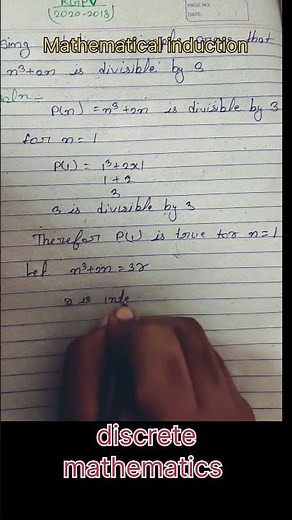 RGPV
(2020-2018)
PAGE NO.
DATE:
Mathematical induction
n³+2n is divisible by 3
Soln-
P(n) = n³+2n is divisible by 3
for n=1
P(1) = 1³+2×1
1+2
3
3 is divisible by 3
Therefor P(1) is true for n=1
Let n³+2n = 3r
r is inte
discrete
mathematics